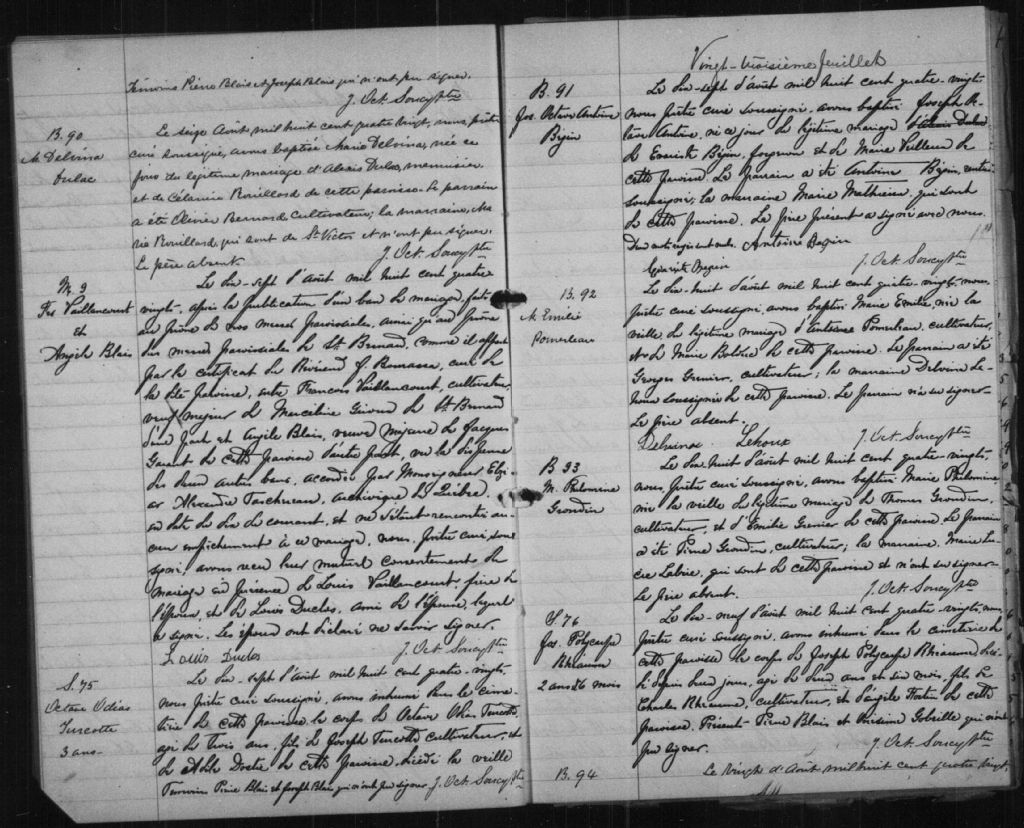 Témoins Pierre Blais et Joseph Blais qui n'ont pu signer.
J. Oct. Soucy Ptre
B. 90
M. Delvina
Dulac
Le seize Août mil huit cent quatre vingt, nous, prêtre
curé soussigné, avons baptisé Marie Delvina, née ce
jour du légitime mariage d'Alexis Dulac, menuisier
et de Célanire Rouillard de cette paroisse. Le parrain
a été Olivier Bernard cultivateur; la marraine, Ma
rie Rouillard, qui sont de St Victor et n'ont pu signer.
Le père absent. J. Oct. Soucy Ptre
M. 9
Frs Vaillancourt
et
Angèle Blais
Le dix-sept d'Août mil huit cent quatre
vingt, après la publication d'un ban de mariage fait
au prône de nos messes paroissiales, ainsi qu'au prône
des messes paroissiales de St Bernard, comme il appert
par le certificat du Révérend J. Bonassa, curé de
la dite paroisse, entre François Vaillancourt, cultivateur,
veuf majeur de Marceline Giroux de St Bernard
d'une part et Angèle Blais, veuve majeure de Jacques
Garant de cette paroisse d'autre part, vu la dispense
de deux autres bans, accordée par Monseigneur Elzé
ar Alexandre Taschereau, archevêque de Québec,
en date du dix du courant, et ne s'étant rencontré au-
cun empêchement à ce mariage, nous, prêtre curé, sous
signé, avons reçu leur mutuel consentement de
mariage en présence de Louis Vaillancourt, frère de
l'époux, et de Louis Duclos, ami de l'épouse, lequel
a signé. Les époux ont déclaré ne savoir signer.
Louis Duclos J. Oct. Soucy Ptre
S. 75
Octave Odias
Turcotte
3 ans.
Le dix-sept d'août mil huit cent quatre-vingt,
nous prêtre curé soussigné, avons inhumé dans le cime-
tière de cette paroisse le corps de Octave Odias Turcotte,
agé de trois ans, fils de Joseph Turcotte cultivateur, et
de de cette paroisse, décédé la veille
Témoins Pierre Blais et Joseph Blais qui n'ont pu signer J. Oct. Soucy Ptre
Vingt-troisième feuillet
B. 91
Jos. Octave Antoine
Bégin
Le dix-sept d'août mil huit cent quatre-vingt
nous prêtre curé soussigné, avons baptisé Joseph Oc-
tave Antoine, né ce jour du légitime mariage
de Evariste Bégin, forgeron et de Marie Veilleux de
cette paroisse. Le parrain a été Antoine Bégin,
soussigné; la marraine Marie Mathieu, qui sont
de cette paroisse. Le père présent a signé avec nous.
Antoine Begin
Evariste Begin J. Oct. Soucy Ptre
B. 92
M. Emilie
Pomerleau
Le dix-huit d'août mil huit cent quatre-vingt, nous,
prêtre curé soussigné, avons baptisé Marie Emilie, née la
veille du légitime mariage d' Pomerleau, cultivateur,
et de Marie de cette paroisse. Le parrain a été
Georges Grenier, cultivateur; la marraine Delvina Le-
houx soussignée de cette paroisse. Le parrain n'a su signer.
Le père absent.
Delvina Lehoux J. Oct. Soucy Ptre
B 93
M. Philomène
Grondin
Le dix-huit d'août mil huit cent quatre-vingt,
nous, prêtre curé soussigné, avons baptisé Marie Philomène
née la veille du légitime mariage de Thomas Grondin,
cultivateur, et d'Emilie Grenier de cette paroisse. Le parrain
a été Pierre Grondin, cultivateur; la marraine, Marie Lu-
cie Labrie, qui sont de cette paroisse et n'ont su signer.
Le père absent. J. Oct. Soucy Ptre
S. 76
Jos. Polycarpe
Rhéaume
2 ans & 6 mois
Le dix-neuf d'août mil huit cent quatre-vingt, nous
prêtre curé soussigné, avons inhumé dans le cimetière de
cette paroisse le corps de Joseph Polycarpe Rhéaume, décé-
dé depuis deux jours, agé de deux ans et six mois, fils de
Charles Rhéaume, cultivateur, et d'Angèle de cette
paroisse. Présents Pierre Blais, et qui n'ont
pu signer. J. Oct. Soucy Ptre
B. 94
Le vingt d'Août mil huit cent quatre vingt,